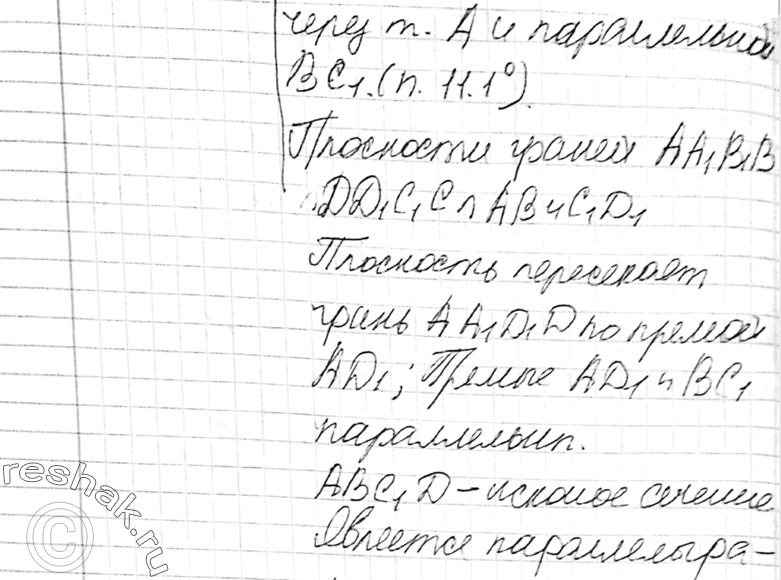 через т. А и параллельной
BC₁. (п. 11.1°).
Плоскости граней AA₁B₁B
DD₁C₁C ∩ AB и C₁D₁
Плоскость пересекает
грань AA₁D₁D по прямой
AD₁; Прямые AD₁ и BC₁
параллельны.
ABC₁D – искомое сечение
Является параллелогра-
reshak.ru